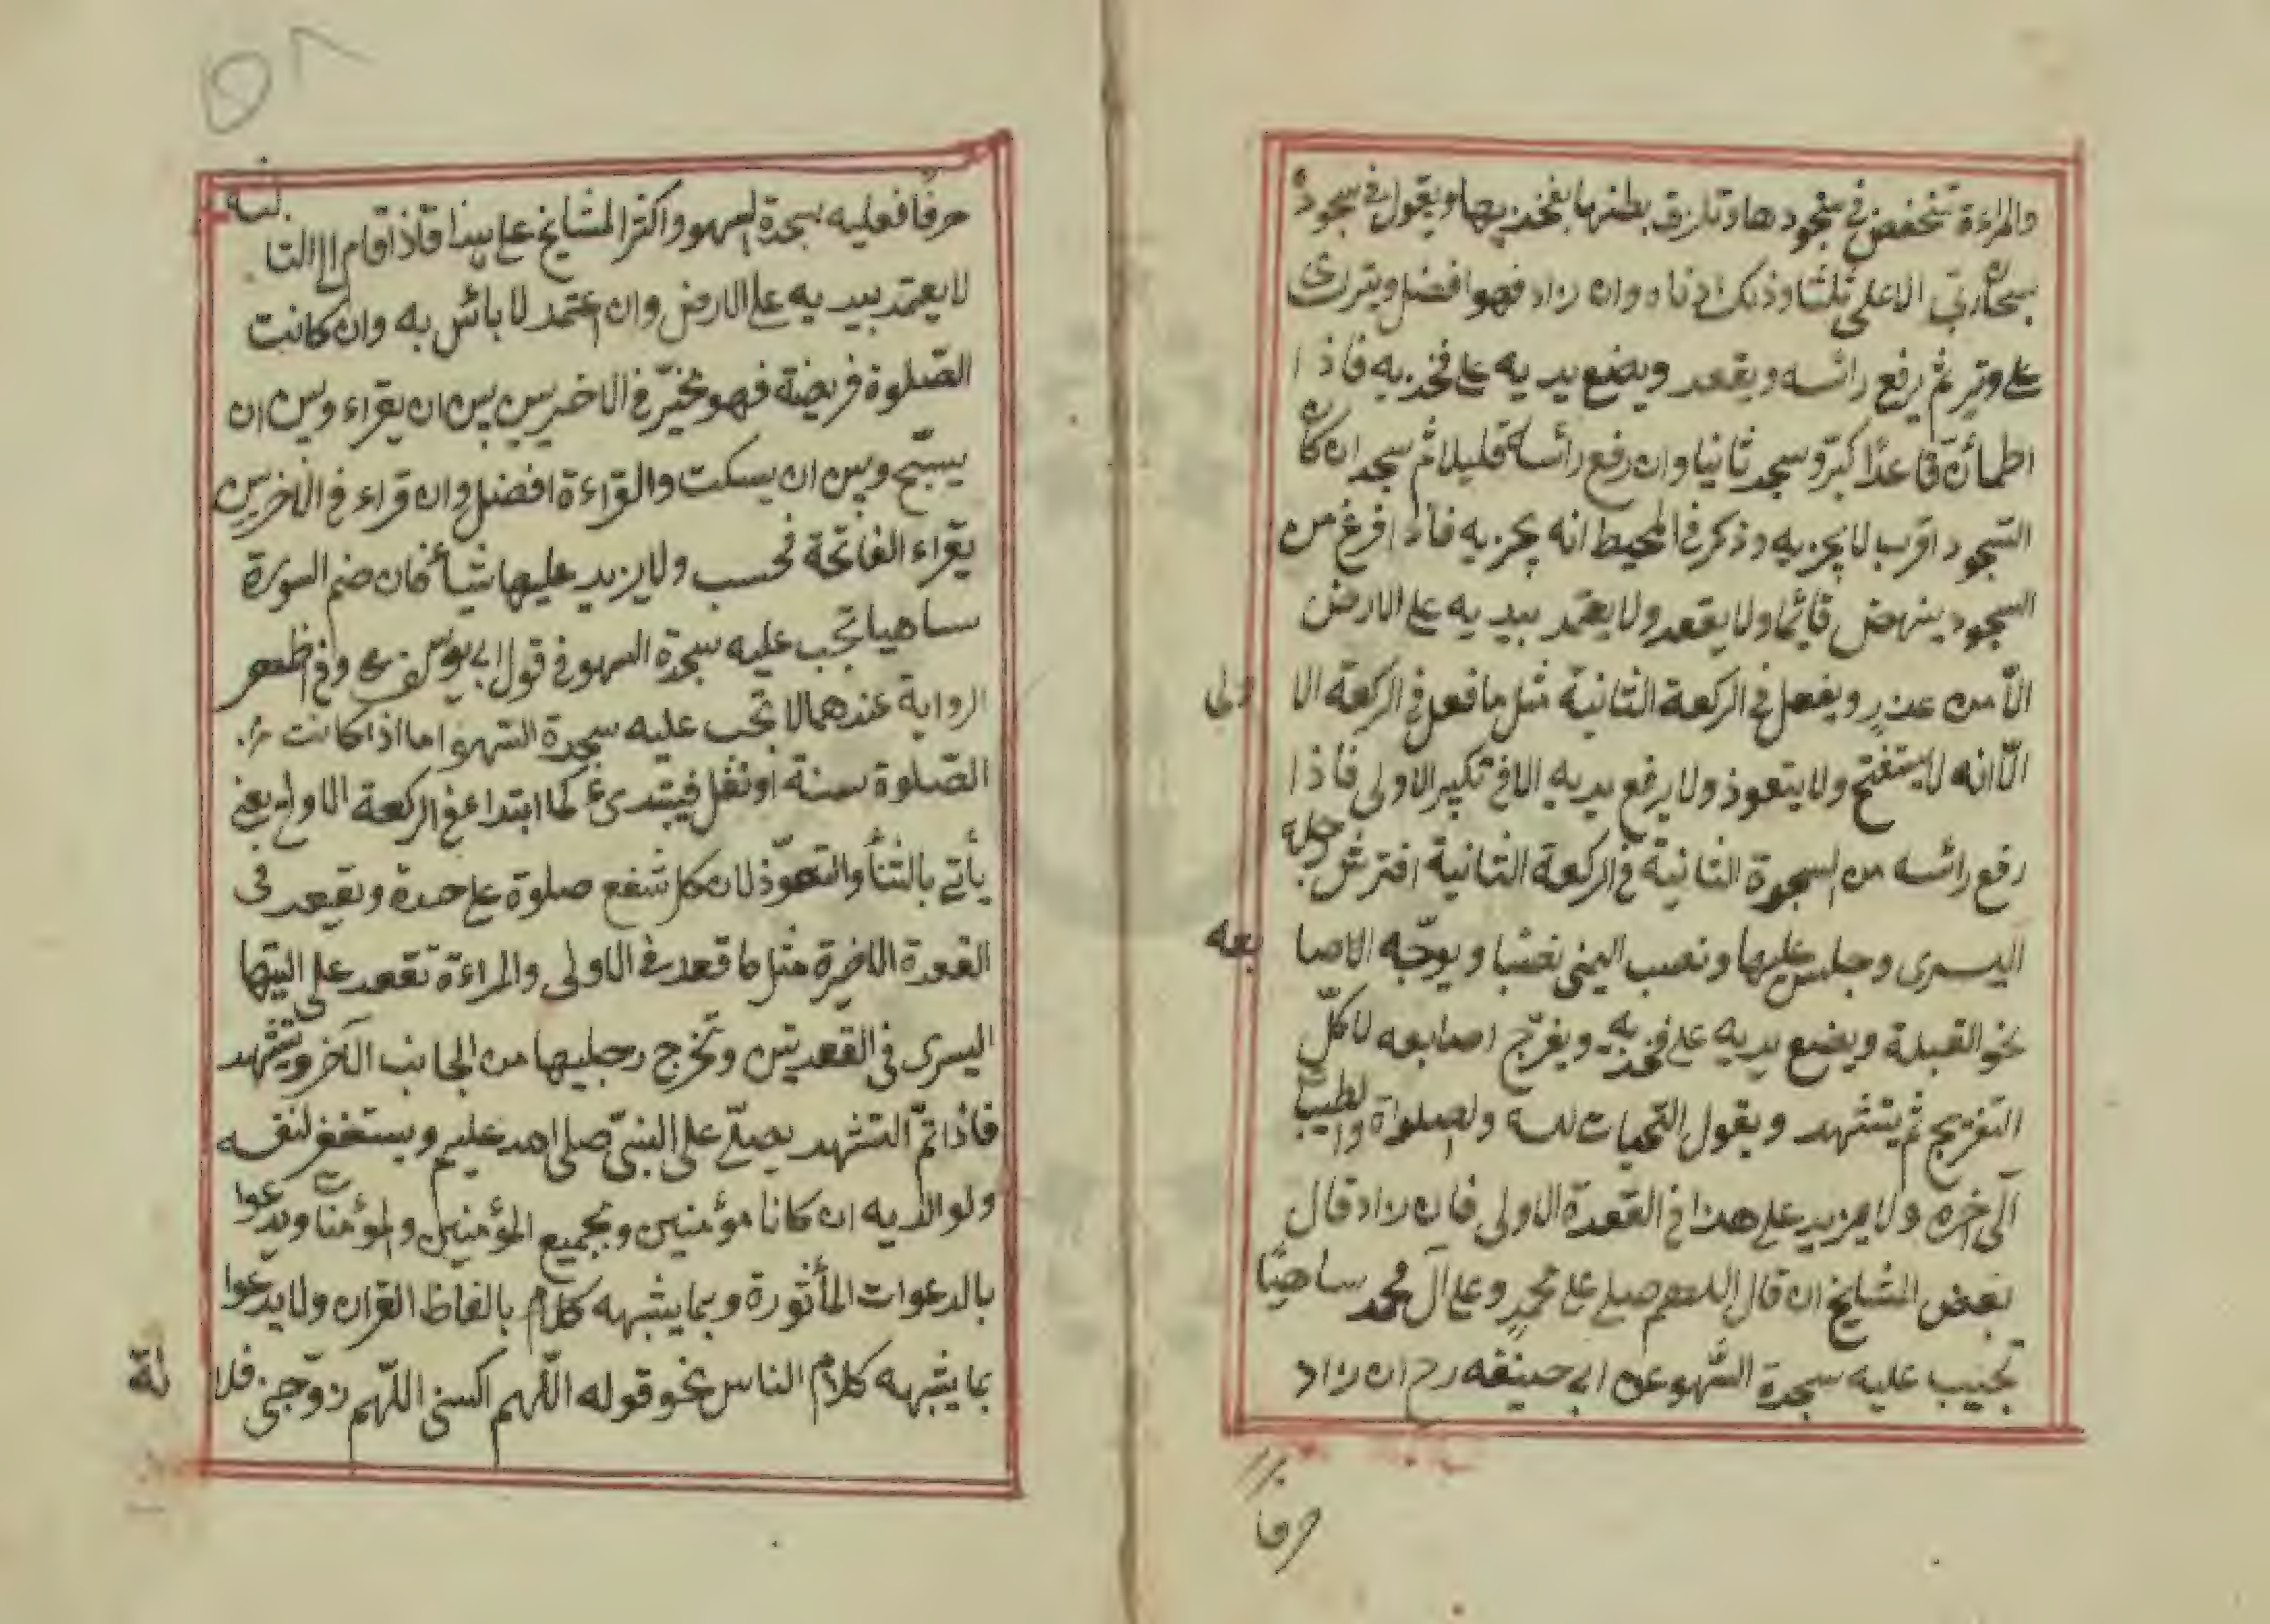 والمراءة تنخفض في سجودها وتلزق بطنها بفخذيها ويقول في سجوده
سبحان ربي الاعلى ثلثا وذلك ادناه وان زاد فهو افضل ويترك
على وتر ثم يرفع رائسه ويقعد ويضع يديه على فخذيه فاذا
اطمائن قاعدًا كبّر وسجد ثانيا وان رفع رائسه قليلا ثم سجد ان كان
السّجود اقرب لا يجزيه وذكر في المحيط انه يجزيه فاذا فرغ من
السجود ينهض قائما ولا يقعد ولا يعتمد بيديه على الارض
الّا من عذرٍ ويفعل في الركعة الثانية مثل ما فعل في الركعة الاولى
الّا انه لا يستفتح ولا يتعوذ ولا يرفع يديه الا في تكبير الاولى فاذا
رفع رائسه من السجدة الثانية في الركعة الثانية افترش رجله
اليسرى وجلس عليها ونصب اليمنى نصبًا ويوجّه الاصابعه
نحو القبلة ويضع يديه على فخذيه ويفرّج اصابعه لا كلّ
التفريج ثم يتشهد ويقول التحيات لله والصلواة والطيبات
الى خره ولا يزيد على هذا في القعدة الاولى فان زاد قال
بعض المشايخ ان قال اللهم صلي على محمدٍ وعلى آل محمد ساهيًا
تجيب عليه سجدة السّهو عن ابي حنيفه رح ان زاد
حرفا
٥٨
حرفًا فعليه سجدة السهو واكثر المشايخ على هذا فاذا قام الى الثالثة
لا يعتمد بيديه على الارض وان اعتمد لا بائس به وان كانت
الصّلوة فريضة فهو مخيّر في الاخريين بين ان يقراء وبين ان
يسبّح وبين ان يسكت والقراءة افضل وان قراء في الاخريين
يقراء الفاتحة فحسب ولا يزيد عليها شيأ فان ضم السورة
ساهيا تجب عليه سجدة السهو في قول ابي يوسف رح وفي اظهر
الرواية عندهما لا تجب عليه سجدة السّهو اما اذا كانت
الصّلوة سنة او نفل فيبتدئ كما ابتداء في الركعة الاولى يعني
يأتي بالثنأ والتعوّذ لان كل شفع صلوة على حدة ويقعد في
القعدة الاخيرة مثل ما قعد في الاولى والمراءة تقعد على اليتها
اليسرى في القعدتين وتخرج رجليها من الجانب الآخر ويتشهد
فاذا تمّ التشهد يصلّي على النبيّ صلى الله عليه وم ويستغفر لنفسه
ولوالديه ان كانا مؤمنين ولجميع المؤمنين والمؤمنات ويدعوا
بالدعوات المأثورة وبما يشبهه كلام بالفاظ القرآن ولا يدعوا
بما يشبهه كلام الناس نحو قوله اللّهم اكسني اللّهم زوّجني فلانة